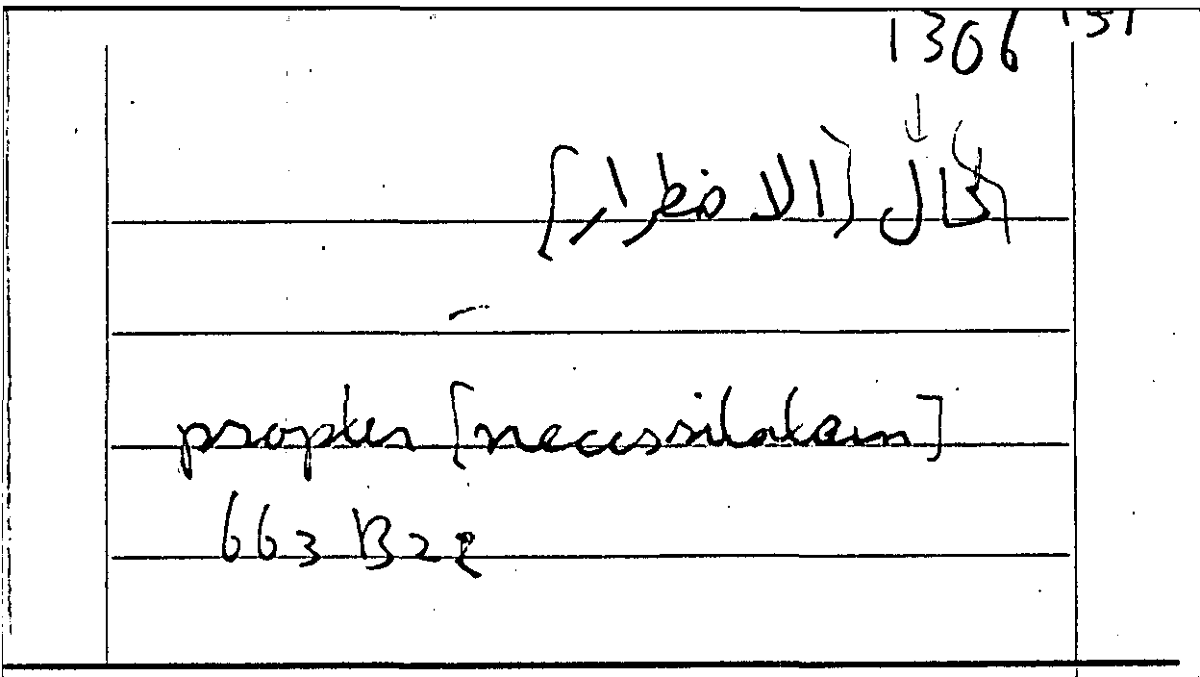 1306 151
لحال [الاضطرار]
propter [necessitatem]
663 B 22